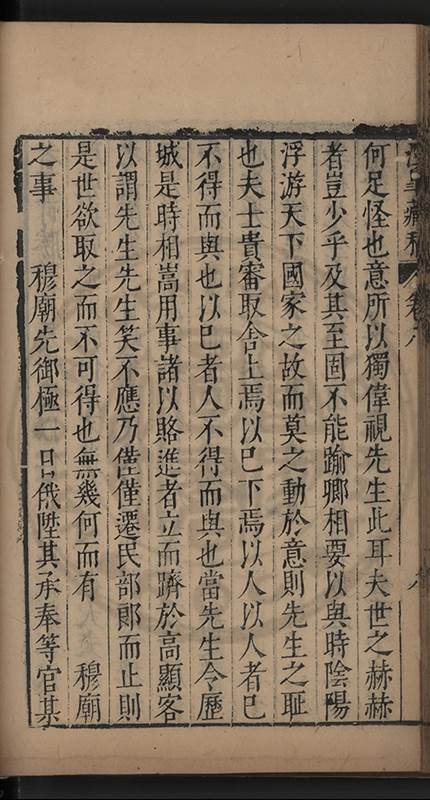 藏稿 卷六
何足怪也意所以獨偉視先生此耳夫世之赫赫
者豈少乎及其至固不能踰卿相要以與時陰陽
浮游天下國家之故而莫之動於意則先生之恥
也夫士貴審取舍上焉以已下焉以人以人者已
不得而與也以已者人不得而與也當先生令歷
城是時相嵩用事諸以賂進者立而躋於高顯客
以謂先生先生笑不應乃僅僅遷民部郎而止則
是世欲取之而不可得也無幾何而有 穆廟
之事 穆廟先御極一日俄陞其承奉等官某